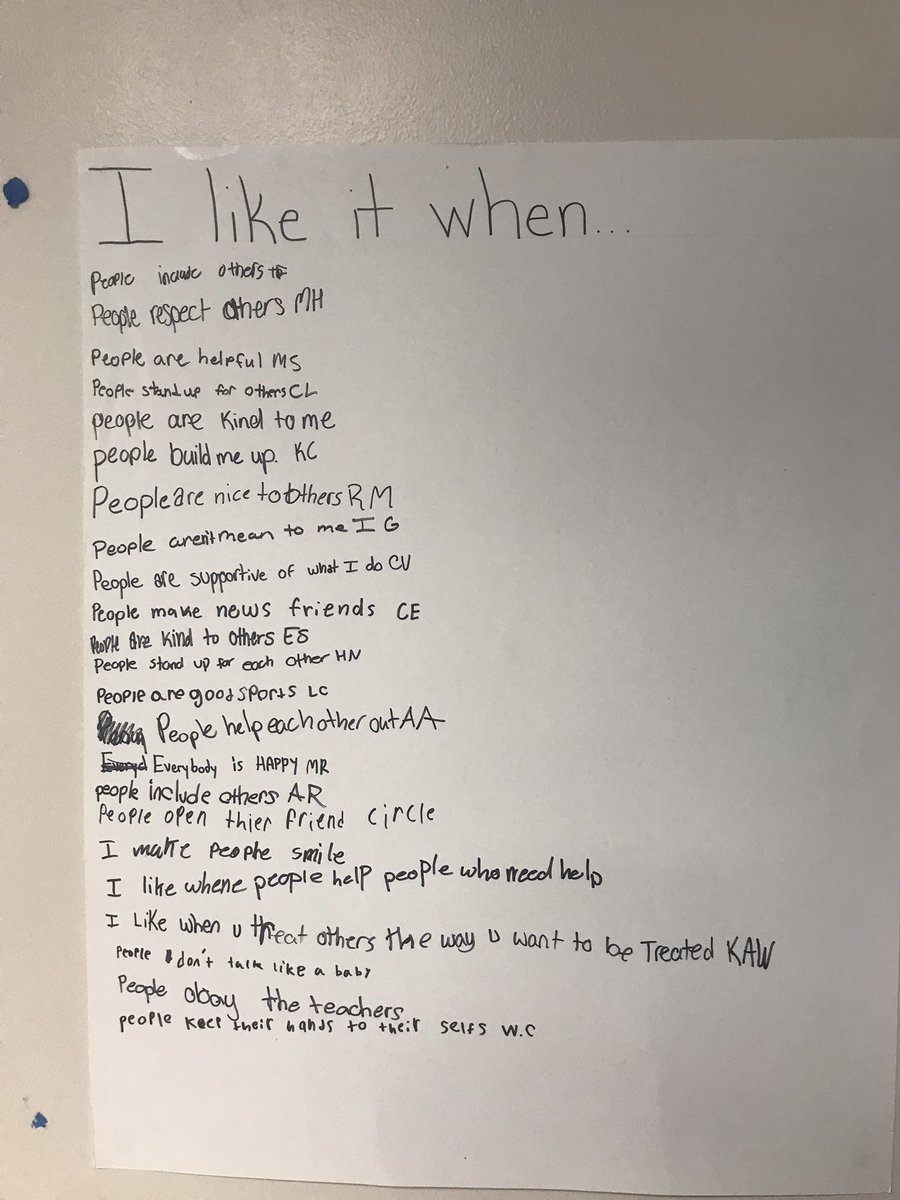 I like it when...
People include others
People respect others MH
People are helpful MS
People stand up for others CL
people are kind to me
people build me up. KC
People are nice to others RM
People aren't mean to me IG
People are supportive of what I do CV
People make news friends CE
People are kind to others ES
People stand up for each other HN
People are good sports LC
People help each other out AA
Everyd Everybody is HAPPY MR
people include others AR
People open thier friend circle
I make people smile
I like whene people help people who need help
I Like when u threat others the way u want to be Treated KAW
People don't talk like a baby
People obay the teachers
people keep their hands to their selfs W.C